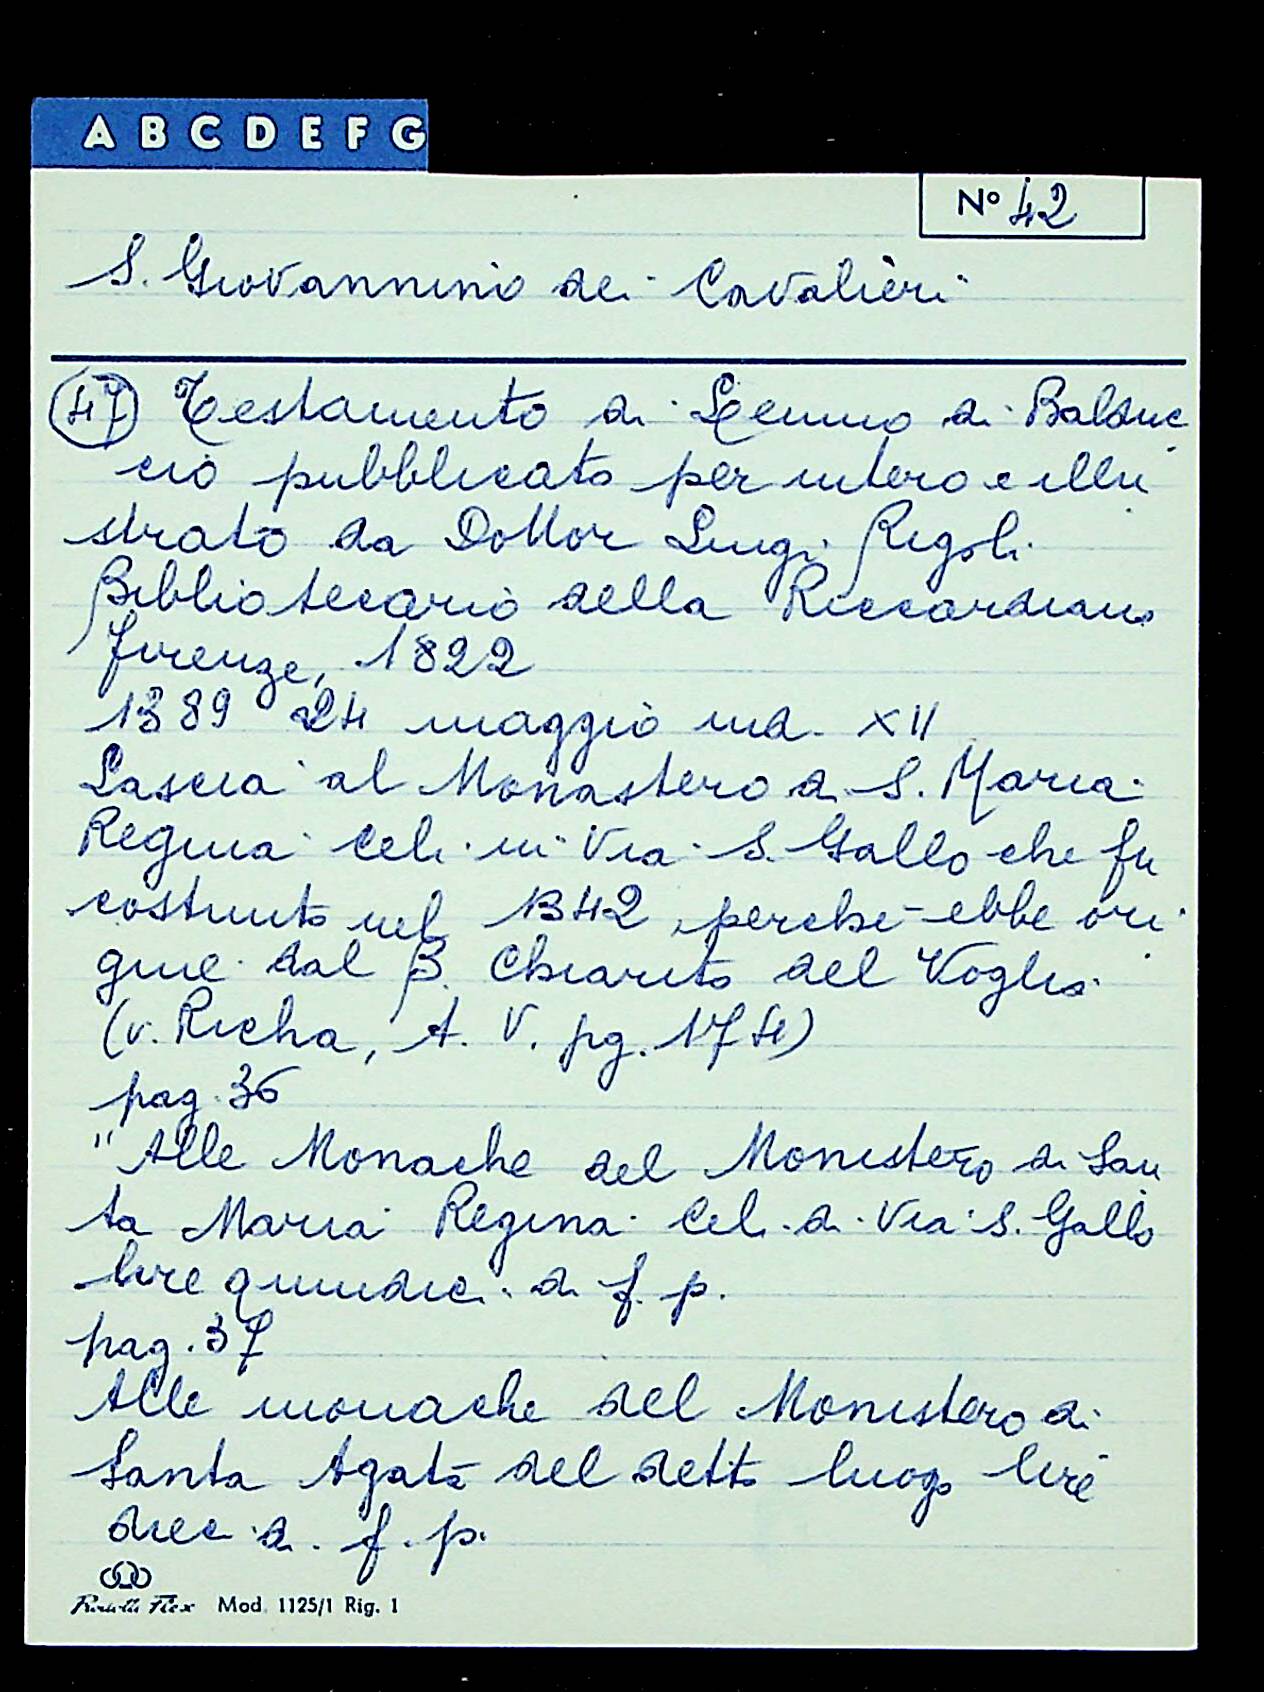 A B C D E F G
Nº 42
S. Giovannino dei Cavalieri
47 Testamento di Lemmo di Balduc
cio pubblicato per intero e illu
strato da Dottor Luigi Rigoli
Bibliotecario della Riccardiana
Firenze, 1822
1389 24 maggio ind. XII
Lascia al Monastero di S. Maria
Regina Celi in Via S. Gallo che fu
costruito nel 1342 perché ebbe ori
gine dal B. Chiarito del Voglia
(v. Richa, t. V. pg. 174)
pag. 36
"Alle Monache del Monistero di San
ta Maria Regina Celi di Via S. Gallo
lire quindici di f. p.
pag. 37
Alle monache del Monistero di
Santa Agata del detto luogo lire
dieci di f. p.
Mod. 1125/1 Rig. 1